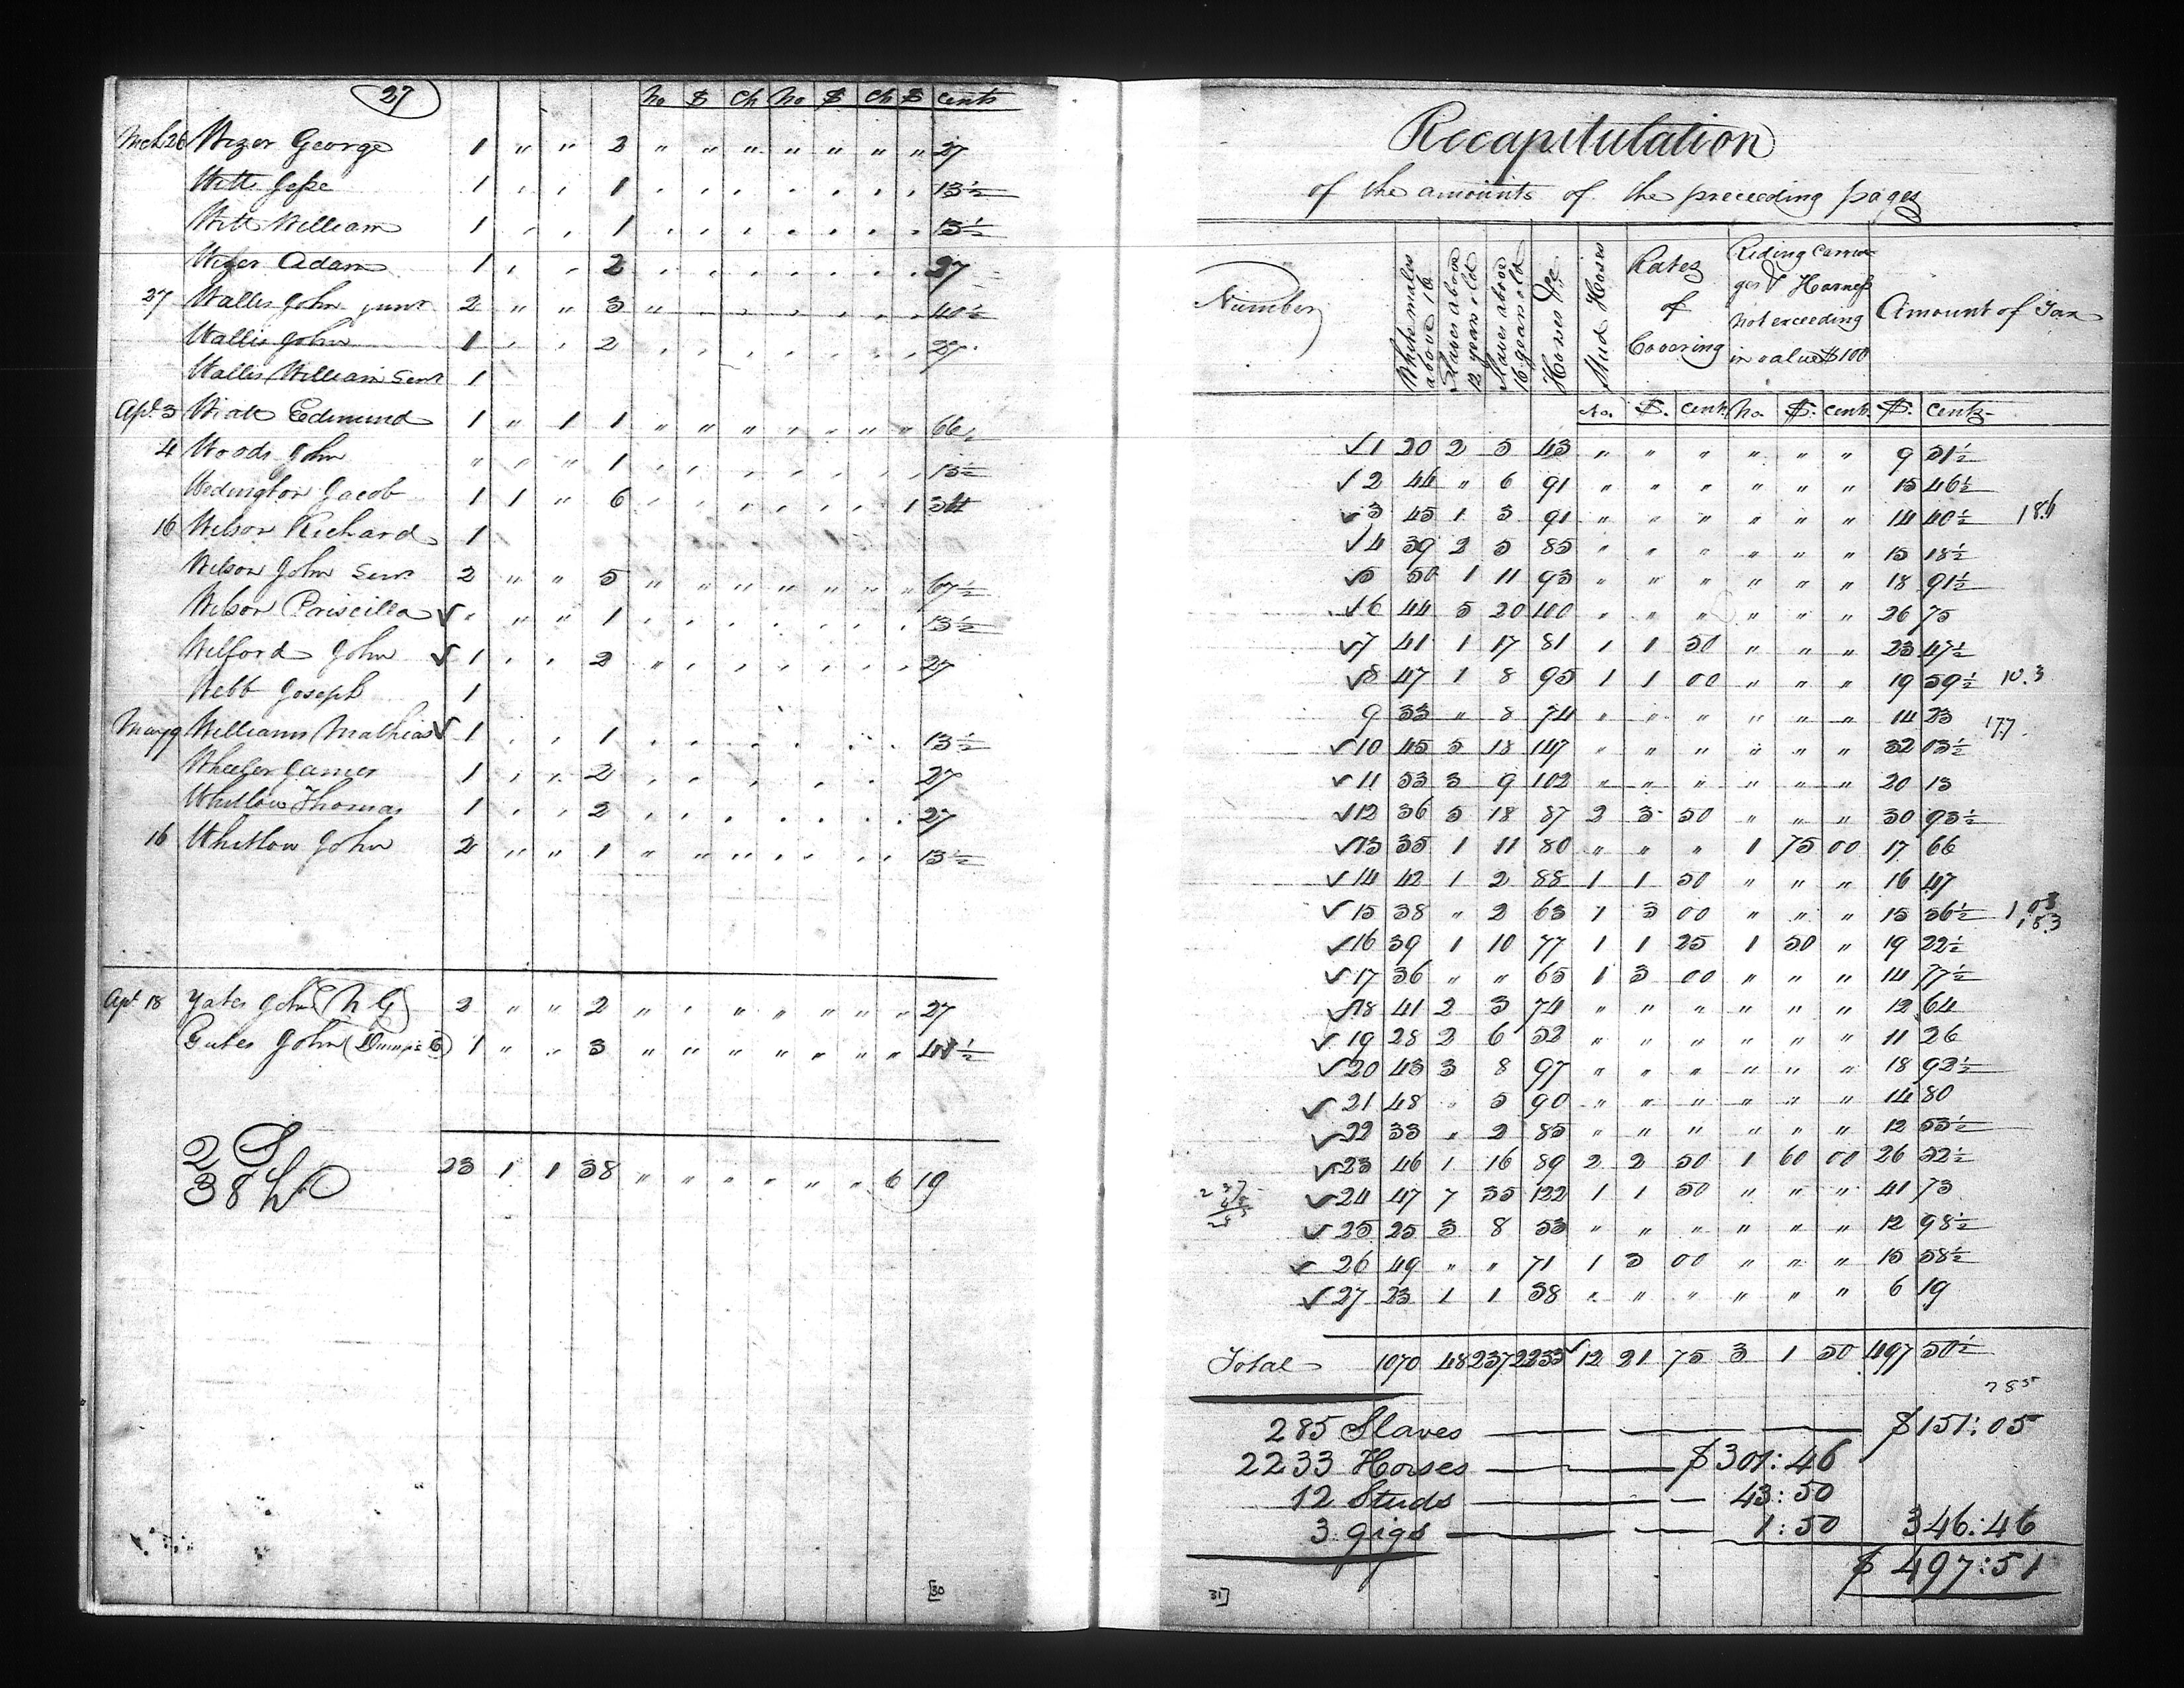 27
No $ Ch No $ Ch $ Cents
Mch 26 Wizer George 1 " " 2 " " " " " " " 27
Witt Jesse 1 " " 1 " " " " " " " 13½
Witt William 1 " " 1 " " " " " " " 13½
Wizer Adam 1 " " 2 " " " " " " " 27
27 Wallis John junr 2 " " 3 " " " " " " " 40½
Wallis John 1 " " 2 " " " " " " " 27
Wallis William Senr 1
Apl. 3 Wiatt Edmund 1 " 1 1 " " " " " " " 66½
4 Woods John " " " 1 " " " " " " " 13½
Wedington Jacob 1 1 " 6 " " " " " " 1 34
16 Wilson Richard 1
Wilson John Senr 2 " " 5 " " " " " " " 67½
Wilson Priscilla ✓ " " " 1 " " " " " " " 13½
Wilford John ✓ 1 " " 2 " " " " " " " 27
Webb Joseph 1
May 9 Williams Mathias ✓ 1 " " 1 " " " " " " " 13½
Wheeler James 1 " " 2 " " " " " " " 27
Whitlow Thomas 1 " " 2 " " " " " " " 27
16 Whitlow John 2 " " 1 " " " " " " " 13½
Apl 18 Yates John (N G) 2 " " 2 " " " " " " " 27
Yates John 1 " " 3 " " " " " " " 40½
2 S
38 h
23 1 1 38 " " " " " " 6 19
[30
Recapitulation
of the amounts of the preceeding pages
Number
White males above 16
Slaves above 12 years old
Slaves above 16 years old
Horses &c
Stud Horses
Rates of Covering
Riding Carriages & Harness not exceeding in value $100
Amount of Tax
No. $. cents No. $. cents. $. cents
✓ 1 20 2 5 43 " " " " " " 9 51½
✓ 2 44 " 6 91 " " " " " " 15 46½
✓ 3 45 1 3 91 " " " " " " 14 40½ 184
✓ 4 39 2 5 85 " " " " " " 15 18½
✓ 5 50 1 11 93 " " " " " " 18 91½
✓ 6 44 5 20 100 " " " " " " 26 75
✓ 7 41 1 17 81 1 1 50 " " " 23 47½
✓ 8 47 1 8 95 1 1 00 " " " 19 59½ 10.3
9 33 " 8 74 " " " " " " 14 23 177
✓ 10 45 5 18 147 " " " " " " 32 03½
✓ 11 53 3 9 102 " " " " " " 20 13
✓ 12 36 5 18 87 2 3 50 " " " 30 93½
✓ 13 35 1 11 80 " " " 1 75 00 17 66
✓ 14 42 1 2 88 1 1 50 " " " 16 47
✓ 15 38 " 2 63 1 3 00 " " " 15 56½ 1.03
183
✓ 16 39 1 10 77 1 1 25 1 50 " 19 22½
✓ 17 36 " " 65 1 3 00 " " " 14 77½
✓ 18 41 2 3 74 " " " " " " 12 64
✓ 19 28 2 6 52 " " " " " " 11 26
✓ 20 43 3 8 97 " " " " " " 18 92½
✓ 21 48 " 5 90 " " " " " " 14 80
✓ 22 33 " 2 85 " " " " " " 12 53½
✓ 23 46 1 16 89 2 2 50 1 60 00 26 52½
237
48
285
✓ 24 47 7 35 122 1 1 50 " " " 41 73
✓ 25 25 3 8 53 " " " " " " 12 98½
✓ 26 49 " " 71 1 3 00 " " " 15 58½
✓ 27 23 1 1 38 " " " " " " 6 19
Total 1070 48 237 2233 ✓ 12 21 75 3 1 50 497 50½
285
285 Slaves $151:05
2233 Horses $301:46
12 Studs 43:50
3 gigs 1:50 346:46
$ 497:51
31]